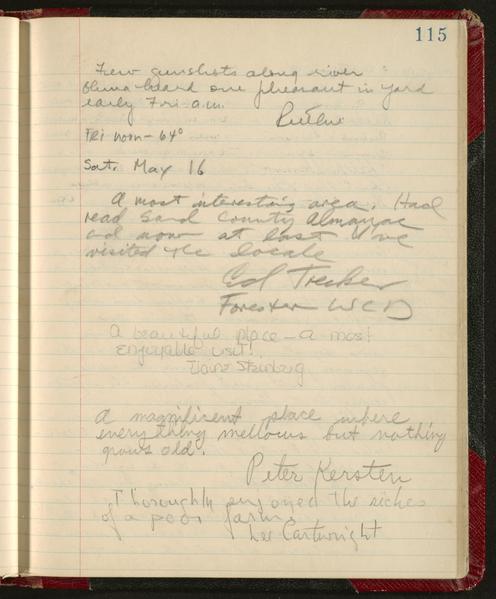 115
Few gunshots along river
heard one pheasant in yard
early Fri. a.m.
Fri noon - 64°
Sat. May 16
A most interesting area. Had
read Sand County Almanac
and now at last I've
visited the locale
Ed Trecker
Forester WCD
A beautiful place - a most
enjoyable visit!
Steinberg
A magnificent place where
everything mellows but nothing
grows old.
Peter Kersten
Thoroughly enjoyed the riches
of a poor farm.
Lee Cartwright